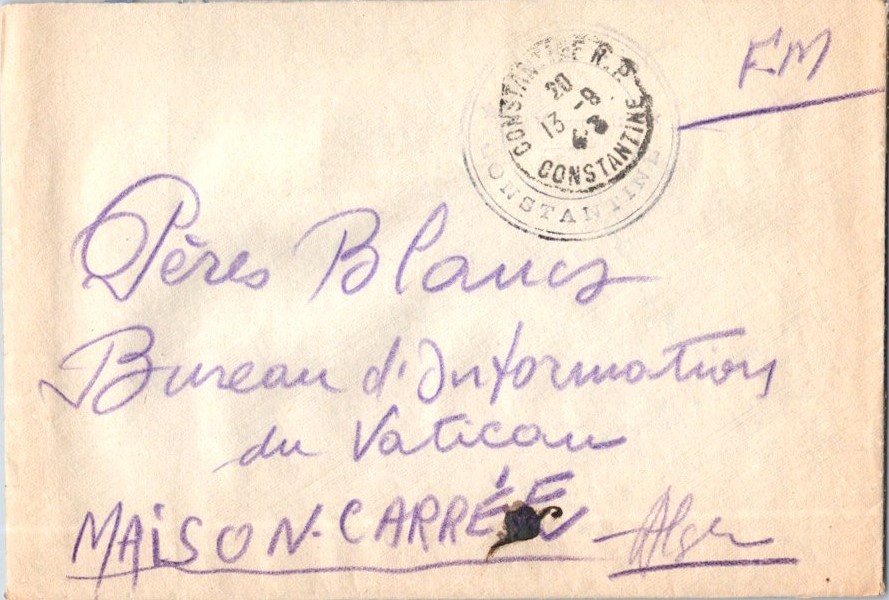 FM
CONSTANTINE R.P.
20
13 -8
43
CONSTANTINE
CONSTANTINE
Pères Blancs
Bureau d'Information
du Vatican
MAISON-CARRÉE - Alger